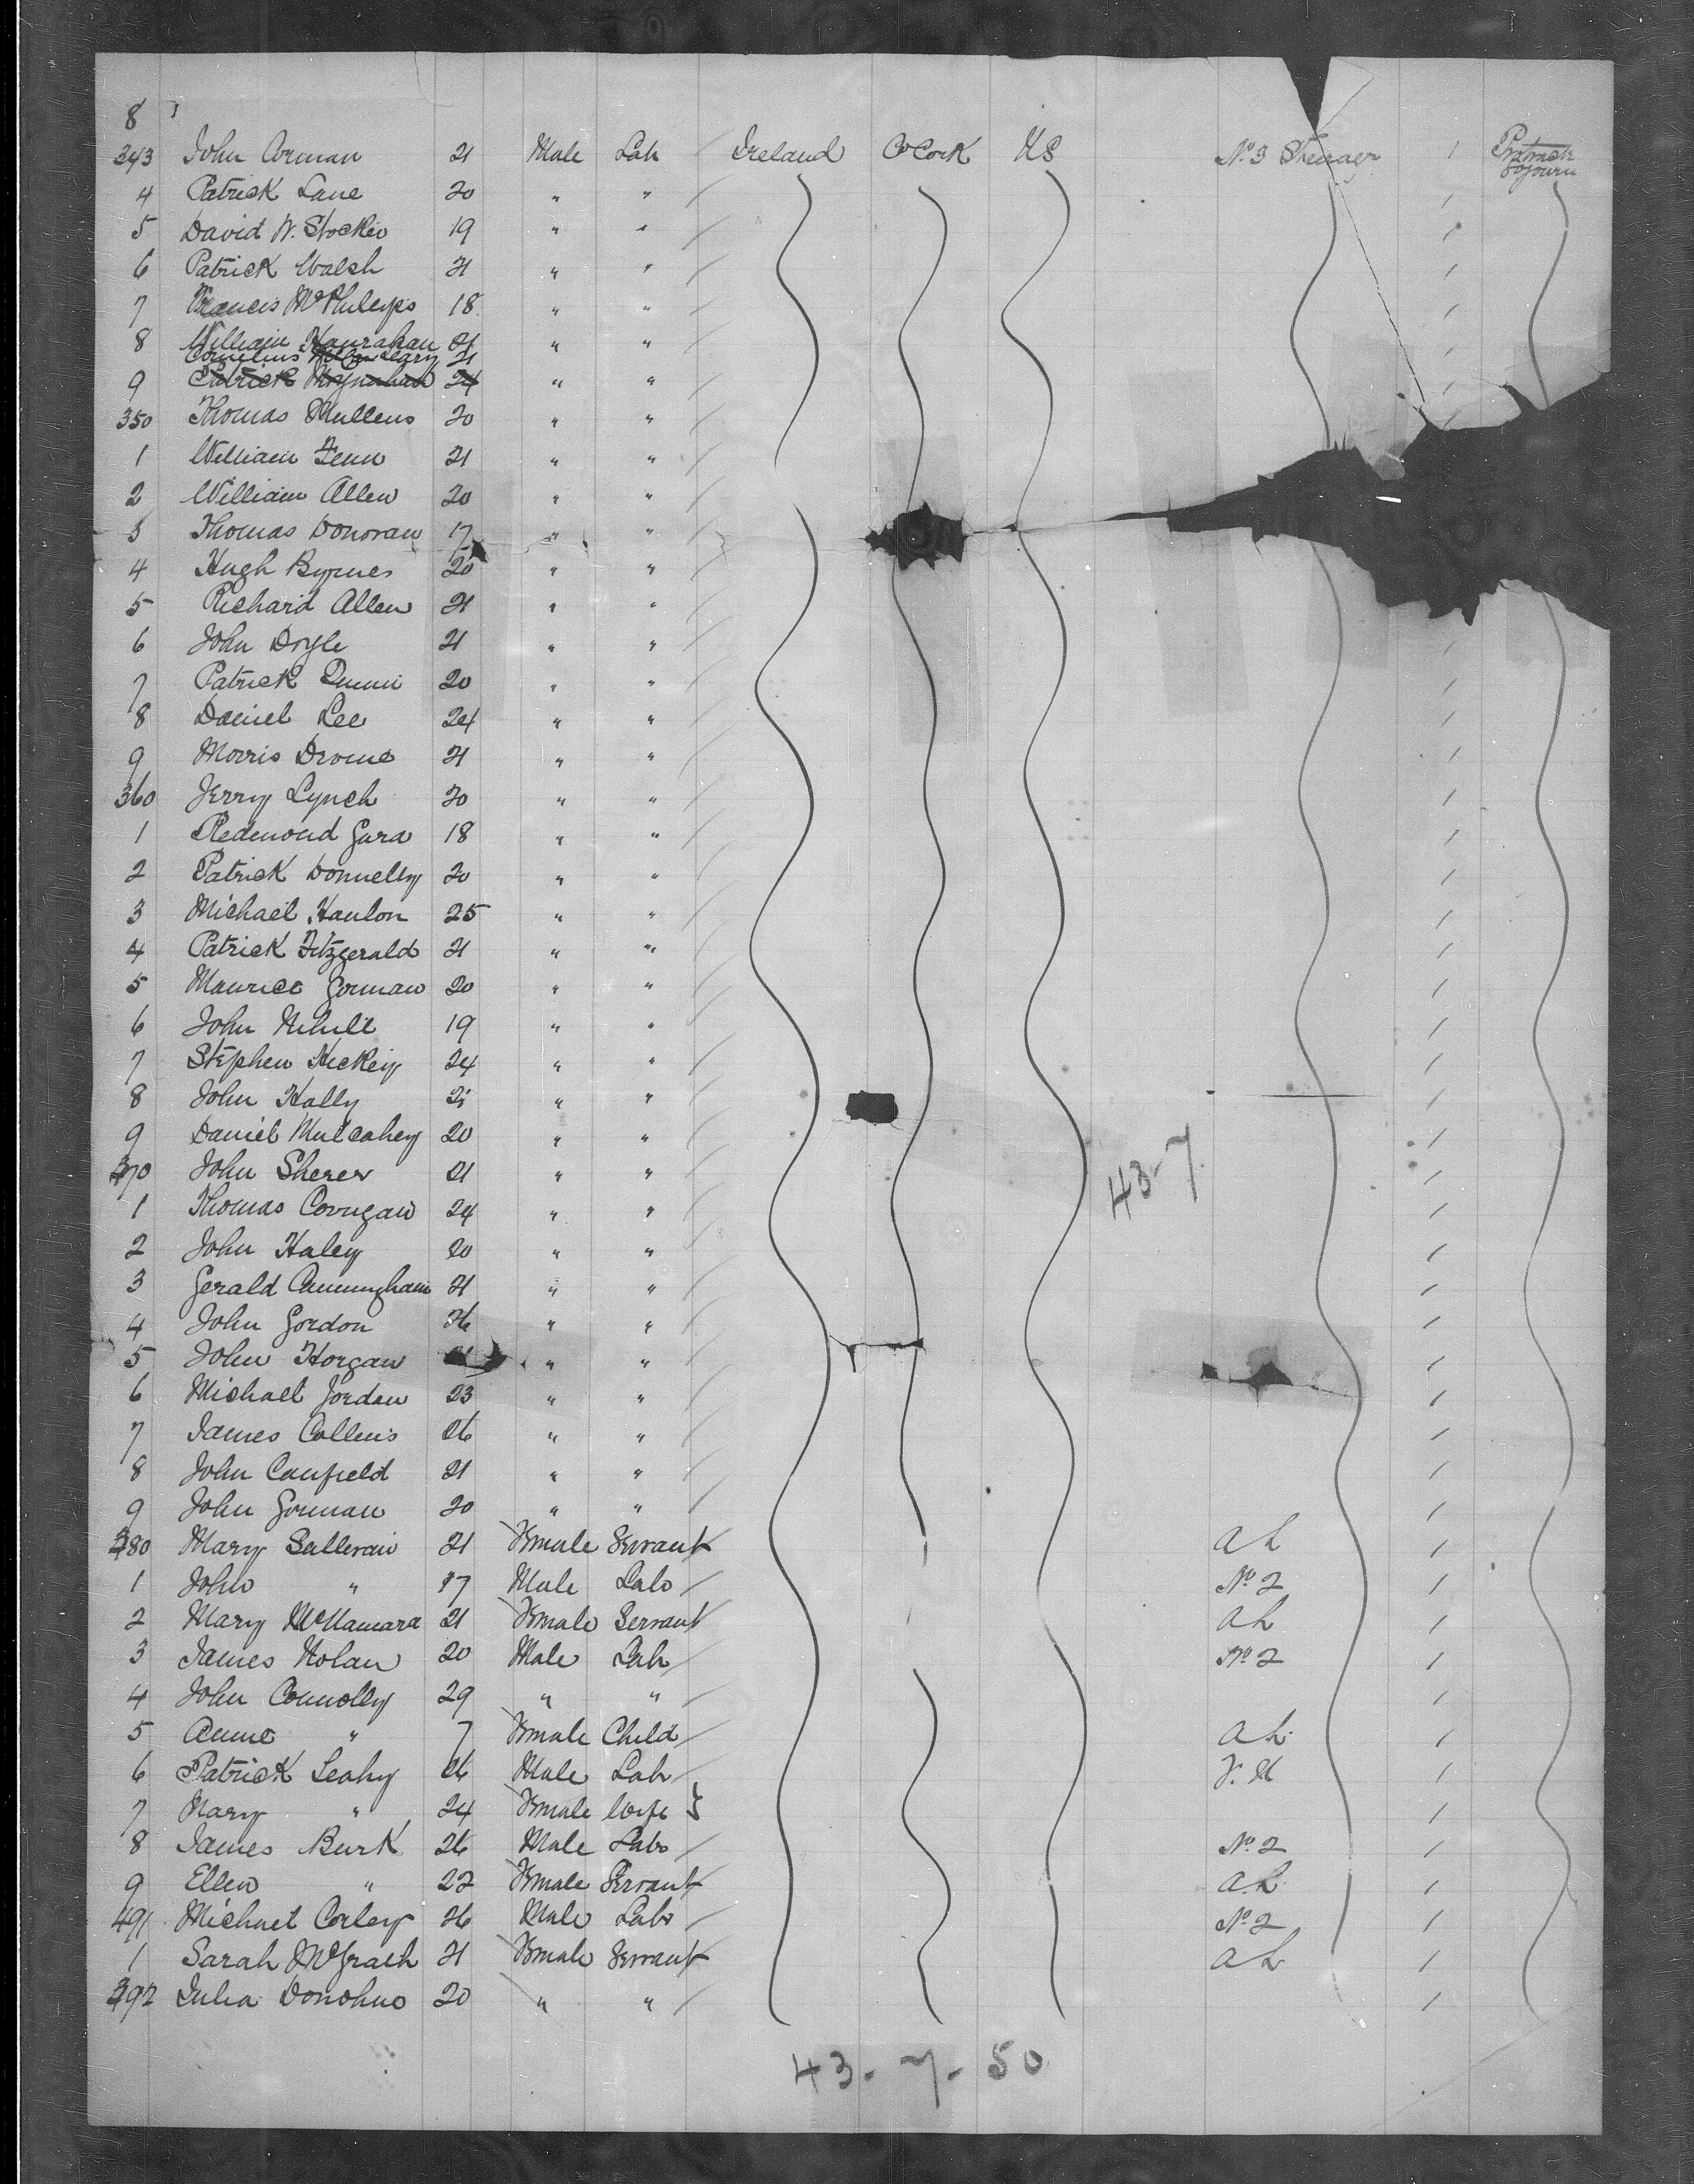 8
343 John Gorman 21 Male Lab Ireland Co Cork US No 3 Steerage / Protracted Sojourn
4 Patrick Lane 20 " " /
5 David W. Stocker 19 " " /
6 Patrick Walsh 21 " " /
7 Francis McPhileps 18 " " /
8 William Hanrahan 21 " " /
Cornelius Leary 21
9 Patrick Moynahan 24 " " /
350 Thomas Mullens 20 " "
1 William Fenn 21 " "
2 William Allen 20 " "
3 Thomas Donovan 17 " "
4 Hugh Byrnes 20 " "
5 Richard Allen 21 " "
6 John Doyle 21 " " /
7 Patrick Quinn 20 " " /
8 Daniel Lee 24 " " /
9 Morris Drome 21 " " /
360 Jerry Lynch 20 " " /
1 Redmond Gara 18 " " /
2 Patrick Donnelly 20 " " /
3 Michael Hanlon 25 " " /
4 Patrick Fitzgerald 21 " " /
5 Maurice Gorman 20 " " /
6 John Nihill 19 " " /
7 Stephen Hickey 24 " " /
8 John Hally " " /
9 Daniel Mulcahey 20 " " /
370 John Sherer 21 " " /
43-7
1 Thomas Corrigan 24 " " /
2 John Haley 20 " " /
3 Gerald Cunningham 21 " " /
4 John Gordon 26 " " /
5 John Horgan " " /
6 Michael Jordan 23 " " /
7 James Collins 26 " " /
8 John Canfield 21 " " /
9 John Gorman 20 " " /
380 Mary Sullivan 21 Female Servant a L /
1 John " 17 Male Lab No 2 /
2 Mary McNamara 21 Female Servant a L /
3 James Nolan 20 Male Lab No 2 /
4 John Connolly 29 " " /
5 Anne " 7 Female Child a L /
6 Patrick Leahy 26 Male Lab /
7 Mary " 24 Female Wife } /
8 James Burk 26 Male Lab No 2 /
9 Ellen " 22 Female Servant a L /
491 Michael Corley 26 Male Lab No 2 /
1 Sarah McGrath 21 Female Servant a L /
392 Julia Donohue 20 " " /
43-7-50